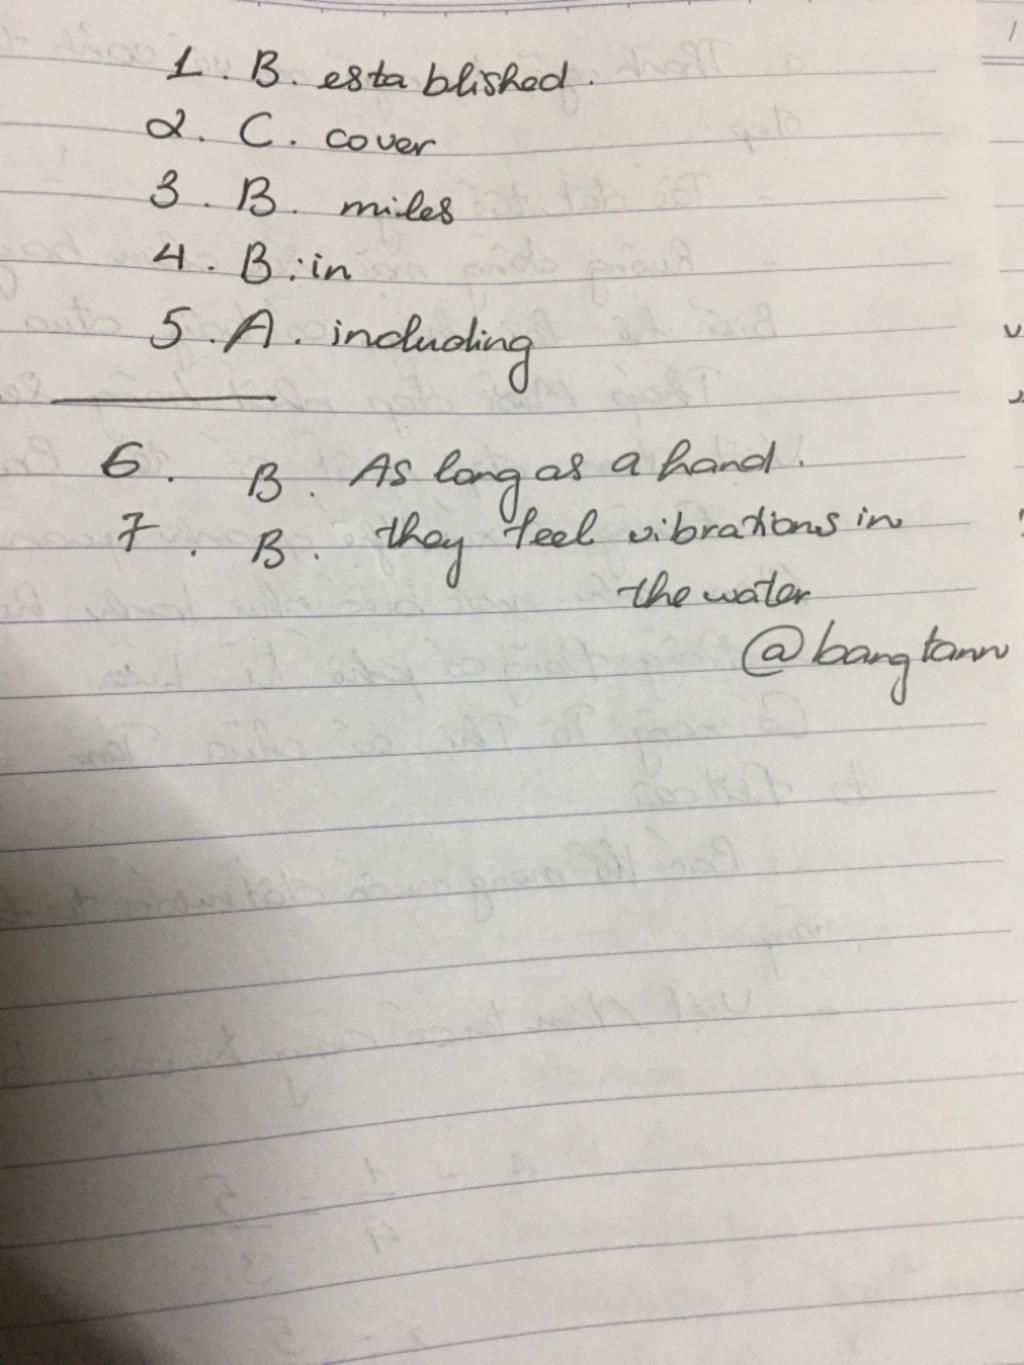 1. B. established.
2. C. cover
3. B. miles
4. B. in
5. A. including
6. B. As long as a hand.
7. B. they feel vibrations in
the water
@bangtann